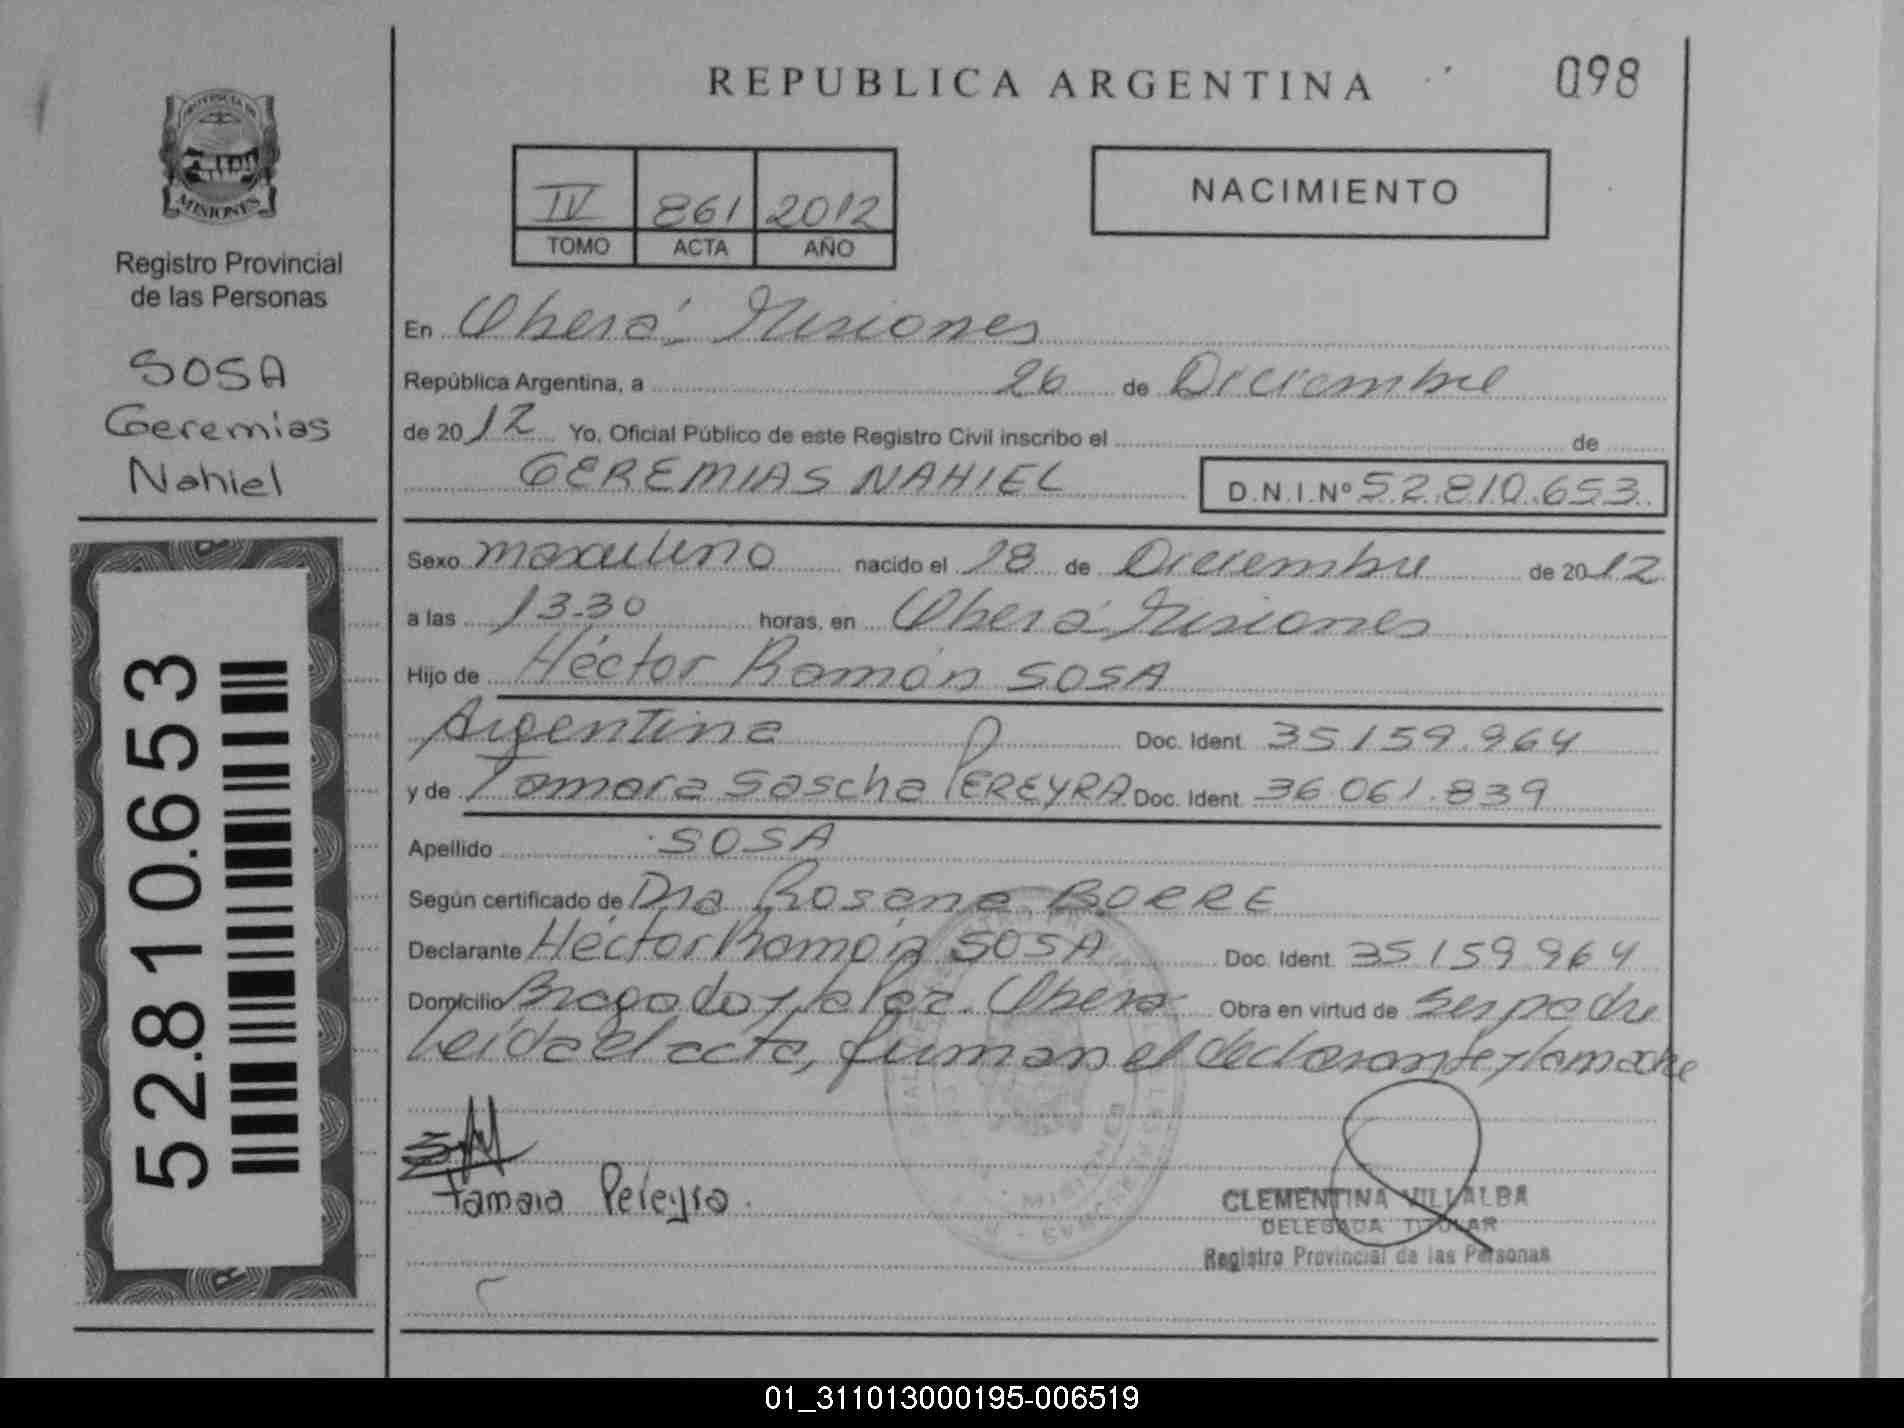 REPUBLICA ARGENTINA
098
PROVINCIA DE
MISIONES
Registro Provincial
de las Personas
SOSA
Geremias
Nahiel
52.810.653
IV 861 2012
TOMO ACTA AÑO
NACIMIENTO
En Oberá, Misiones
República Argentina, a 26 de Diciembre
de 2012 Yo, Oficial Público de este Registro Civil inscribo el de
GEREMIAS NAHIEL D.N.I.Nº 52.810.653
Sexo masculino nacido el 18 de Diciembre de 2012
a las 13.30 horas, en Oberá Misiones
Hijo de Héctor Ramón SOSA
Argentina Doc. Ident. 35159.964
y de Tamara Sascha PEREYRA Doc. Ident. 36.061.839
Apellido SOSA
Según certificado de Dra Rosana BORRE
Declarante Héctor Ramón SOSA Doc. Ident. 35159964
Domicilio Bragado y Oberá Obra en virtud de Ser padre
Leída el acta, firman el declarante y la madre
Tamara Pereyra.
MISIONES
CLEMENTINA VILLALBA
DELEGADA TITULAR
Registro Provincial de las Personas
01_311013000195-006519